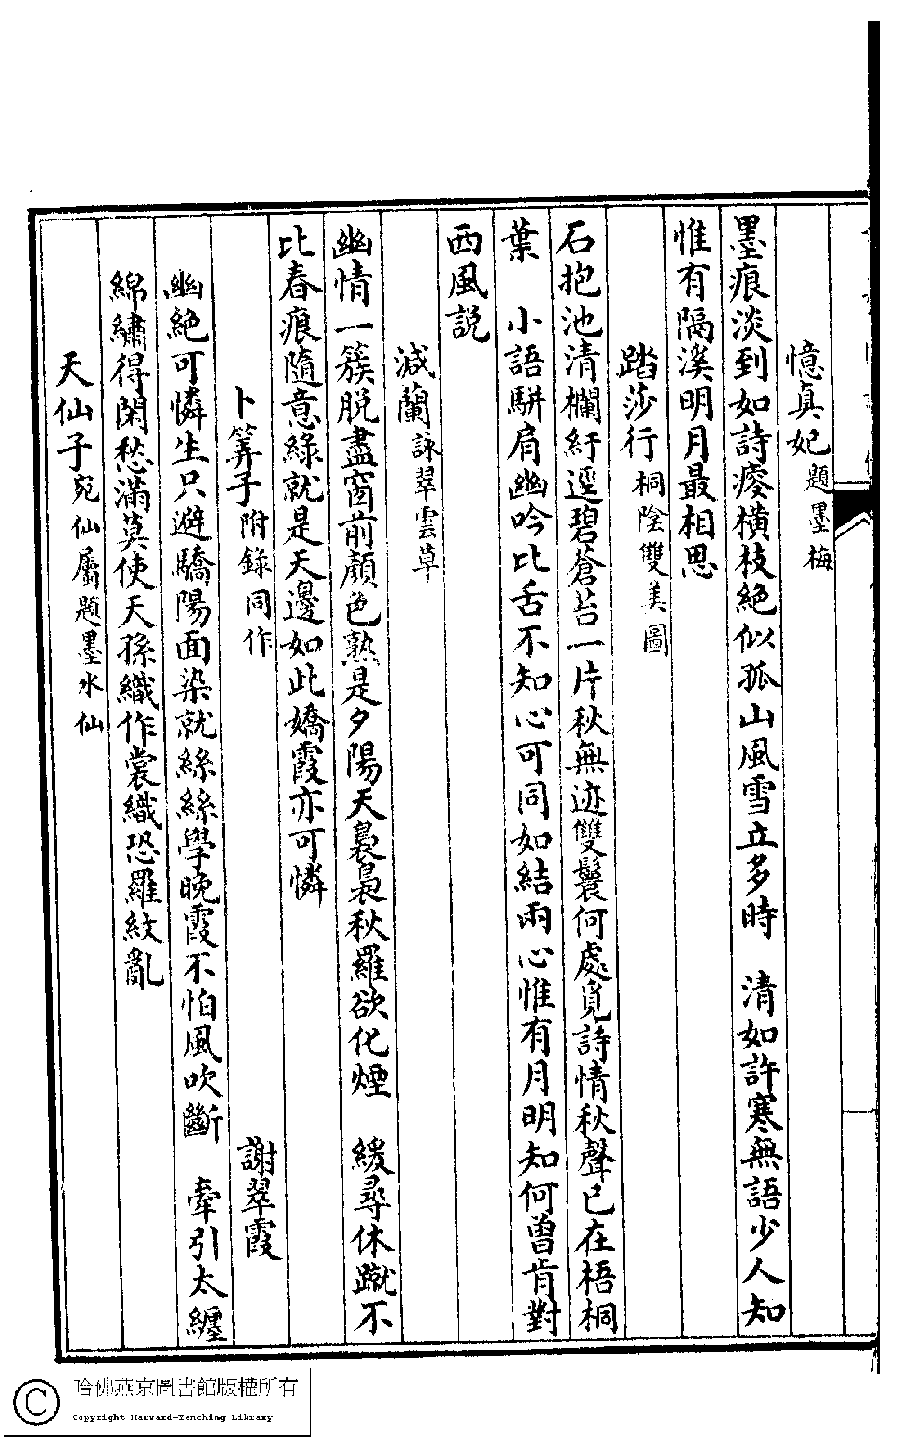 憶真妃題墨梅
墨痕淡到如詩瘦橫枝絕似孤山風雪立多時　清如許寒無語少人知
惟有隔溪明月最相思
踏莎行桐陰雙美圖
石抱池清欄紆逕碧蒼苔一片秋無迹雙鬟何處覓詩情秋聲已在梧桐
葉　小語駢肩幽吟比舌不知心可同如結兩心惟有月明知何曾肯對
西風説
減蘭詠翠雲草
幽情一簇脱盡窗前顏色熟是夕陽天裊裊秋羅欲化煙　緩尋休蹴不
比春痕隨意綠就是天邊如此嬌霞亦可憐
卜筭子附錄同作　謝翠霞
幽絕可憐生只避驕陽面染就絲絲學晚霞不怕風吹斷　牽引太纏
綿繡得閑愁滿莫使天孫織作裳織恐羅紋亂
天仙子宛仙屬題墨水仙
哈佛燕京圖書館版權所有
Copyright Harvard-Yenching Library